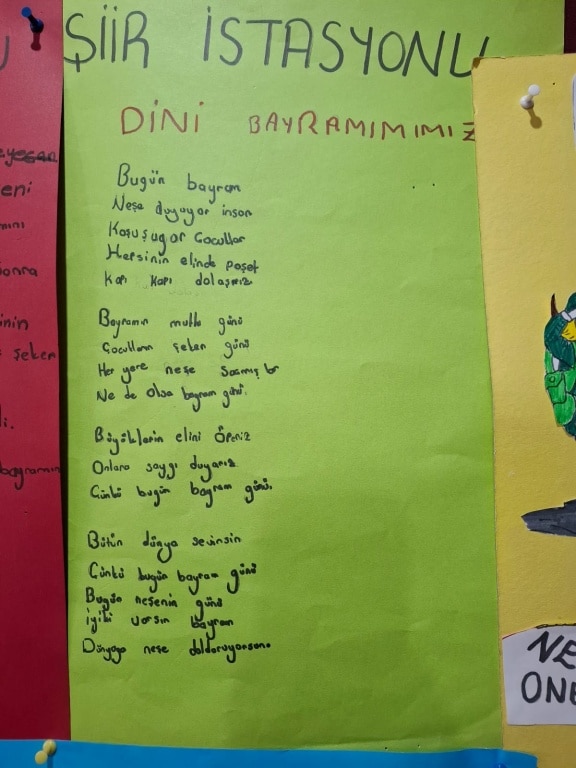 ŞİİR İSTASYONU
DİNİ BAYRAMIMIMIZ
Bugün bayram
Neşe duyuyor insan
Koşuşuyor Çocuklar
Hepsinin elinde poşet
Kapı kapı dolaşırız.
Bayramın mutlu günü
Çocukların şeker günü
Her yere neşe saçmış bir
Ne de Olsa bayram günü.
Büyüklerin elini Öperiz
Onlara saygı duyarız
Çünkü bugün bayram günü.
Bütün dünya sevinsin
Çünkü bugün bayram günü
Bugün neşenin günü
iyiki varsın bayram
Dünyaya neşe dolduruyorsun.
eni
onra
inin
şeker
bayramın
NE
ONE